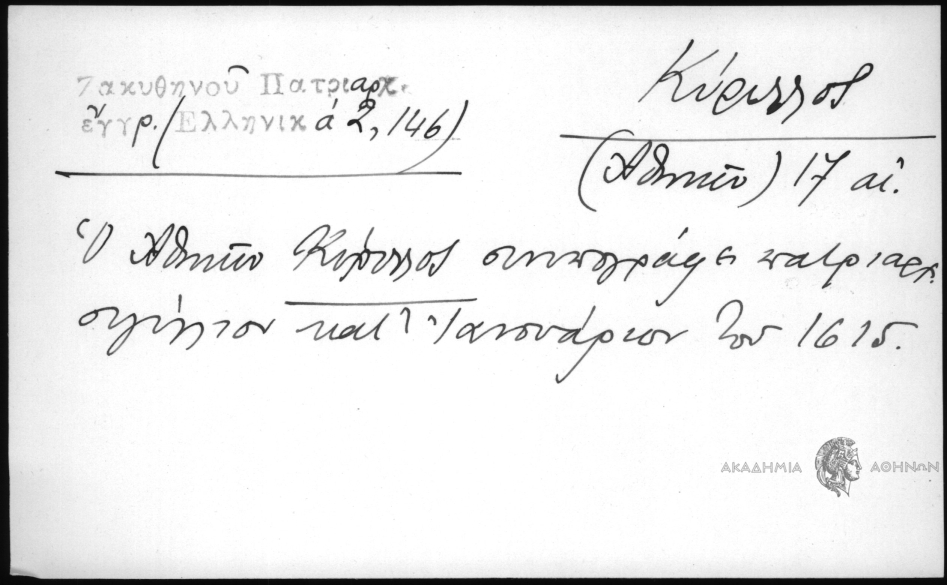 Ζακυθηνοῦ Πατριαρχ.
ἔγγρ. (Ἑλληνικά 2, 146)
Κύριλλος
(Ἀθηνῶν) 17 αἰ.
Ὁ Ἀθηνῶν Κύριλλος συνυπογράφει πατριαρχ.
σιγίλλιον κατ' Ἰανουάριον τοῦ 1615.
ΑΚΑΔΗΜΙΑ ΑΘΗΝΩΝ